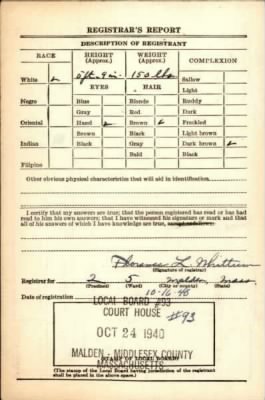 REGISTRAR'S REPORT
DESCRIPTION OF REGISTRANT
RACE HEIGHT (Approx.) WEIGHT (Approx.) COMPLEXION
White ✓ 5 ft. 9 in. 150 lbs Sallow
EYES HAIR Light
Negro Blue Blonde Ruddy
Gray Red Dark
Oriental Hazel ✓ Brown ✓ Freckled
Brown Black Light brown
Indian Black Gray Dark brown ✓
Bald Black
Filipino
Other obvious physical characteristics that will aid in identification
I certify that my answers are true; that the person registered has read or has had
read to him his own answers; that I have witnessed his signature or mark and that
all of his answers of which I have knowledge are true,
L. Whittier
(Signature of registrar)
Registrar for 2 5 Malden, Mass.
(Precinct) (Ward) (City or county) (State)
Date of registration 10-16-40
LOCAL BOARD #93
COURT HOUSE
#93
OCT 24 1940
MALDEN - MIDDLESEX COUNTY
MASSACHUSETTS
(STAMP OF LOCAL BOARD)
(The stamp of the Local Board having jurisdiction of the registrant
shall be placed in the above space.)